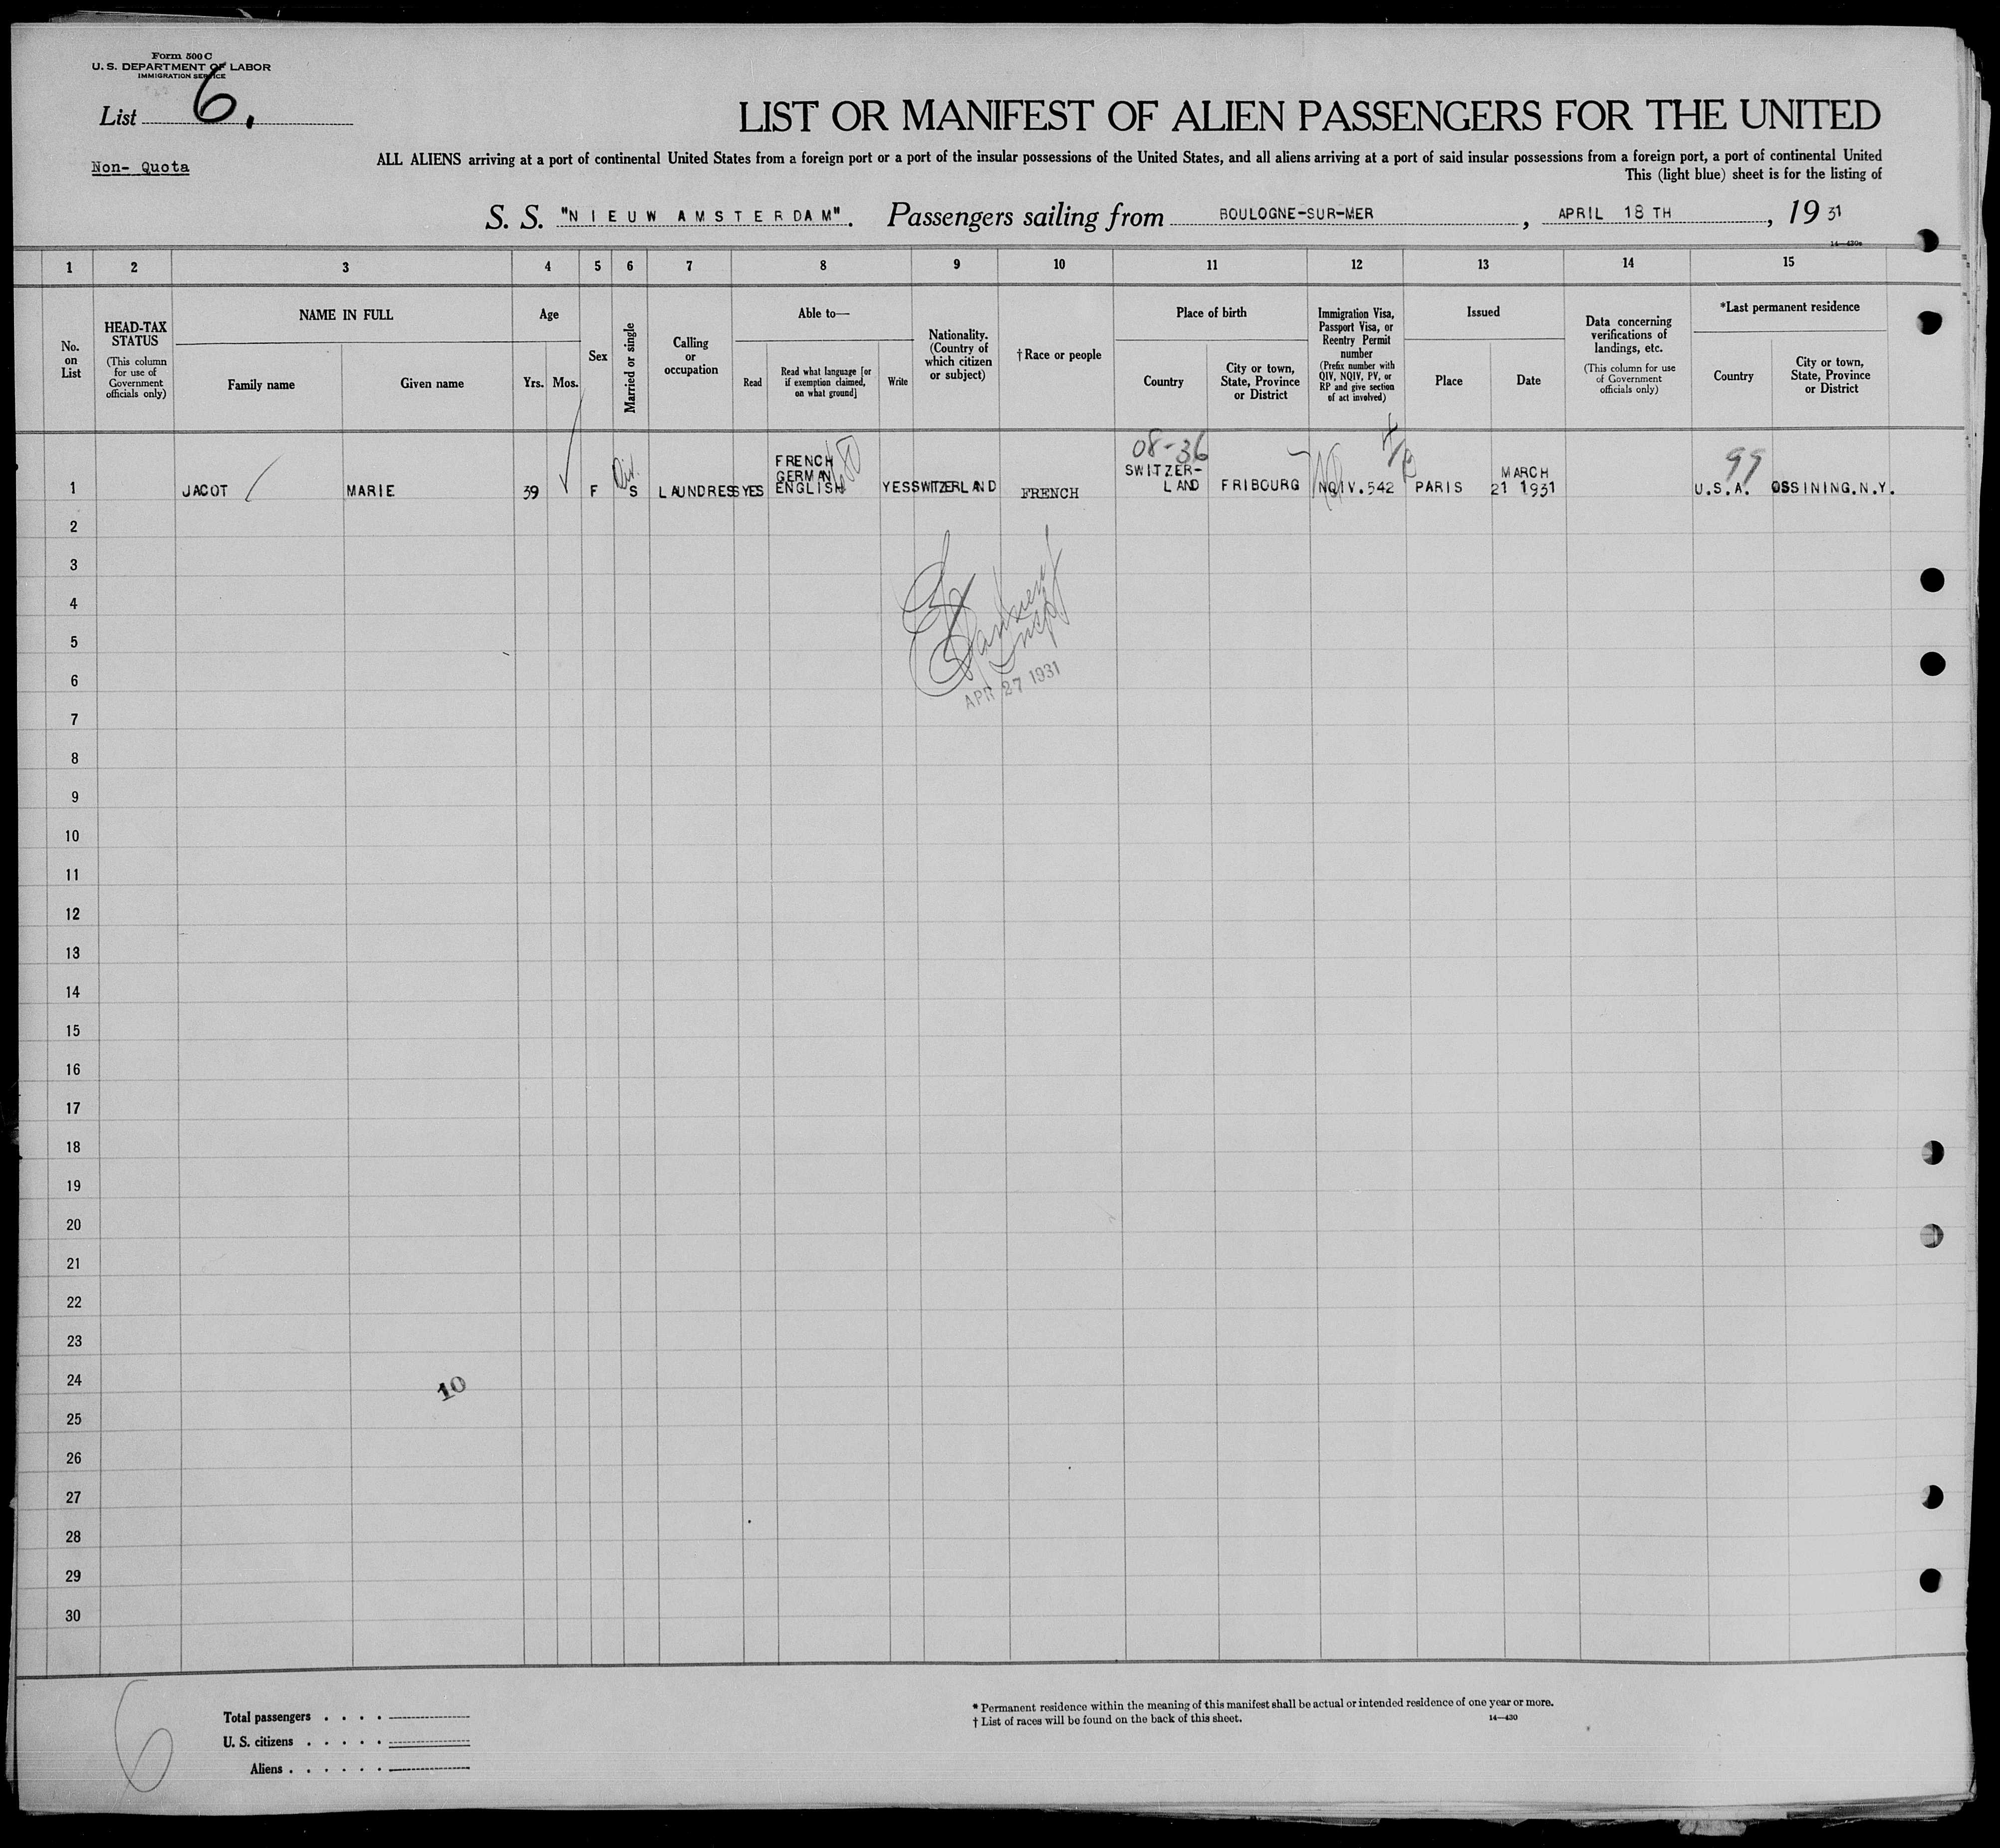 Form 500 C
U. S. DEPARTMENT OF LABOR
IMMIGRATION SERVICE
List 6.
Non- Quota
LIST OR MANIFEST OF ALIEN PASSENGERS FOR THE UNITED
ALL ALIENS arriving at a port of continental United States from a foreign port or a port of the insular possessions of the United States, and all aliens arriving at a port of said insular possessions from a foreign port, a port of continental United
This (light blue) sheet is for the listing of
S. S. "NIEUW AMSTERDAM". Passengers sailing from BOULOGNE-SUR-MER, APRIL 18 TH, 19 31
14—430a
1 2 3 4 5 6 7 8 9 10 11 12 13 14 15
No. on List
HEAD-TAX STATUS (This column for use of Government officials only)
NAME IN FULL
Family name
Given name
Age
Yrs.
Mos.
Sex
Married or single
Calling or occupation
Able to—
Read
Read what language [or if exemption claimed, on what ground]
Write
Nationality. (Country of which citizen or subject)
† Race or people
Place of birth
Country
City or town, State, Province or District
Immigration Visa, Passport Visa, or Reentry Permit number (Prefix number with QIV, NQIV, PV, or RP and give section of act involved)
Issued
Place
Date
Data concerning verifications of landings, etc. (This column for use of Government officials only)
*Last permanent residence
Country
City or town, State, Province or District
08-36
99
1 JACOT MARIE 39 F Div. S LAUNDRESS YES FRENCH GERMAN ENGLISH YES SWITZERLAND FRENCH SWITZER-LAND FRIBOURG NQIV.542 PARIS MARCH 21 1931 U.S.A. OSSINING.N.Y.
2
3
4
5
6
APR 27 1931
7
8
9
10
11
12
13
14
15
16
17
18
19
20
21
22
23
24
10
25
26
27
28
29
30
6
Total passengers . . . .
U. S. citizens . . . . .
Aliens . . . . . .
* Permanent residence within the meaning of this manifest shall be actual or intended residence of one year or more.
† List of races will be found on the back of this sheet.
14—430